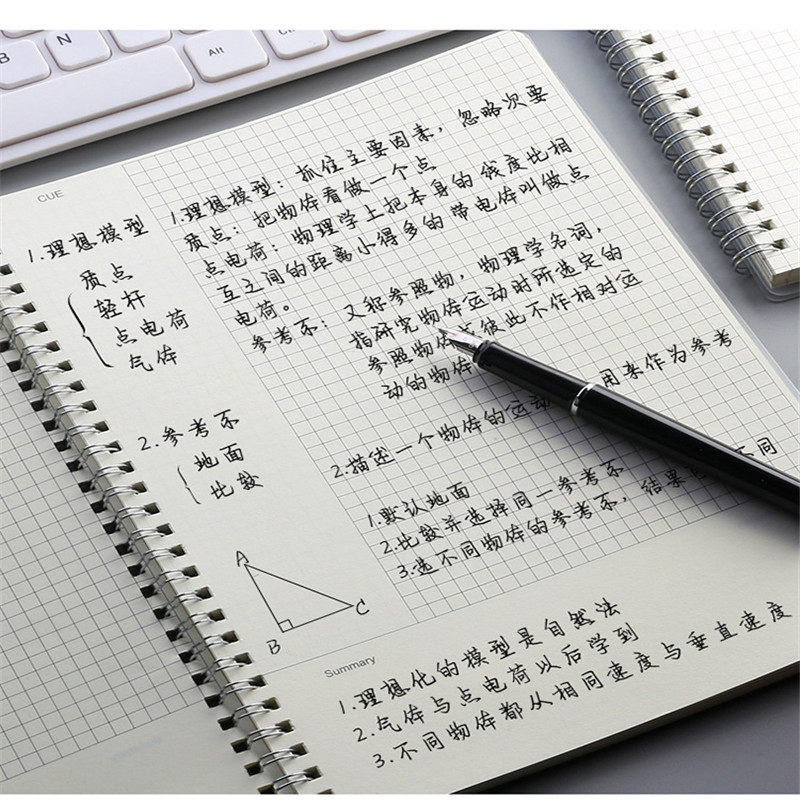 B
N
Alt
CUE
1.理想模型
质点
轻杆
点电荷
气体
2.参考系
地面
比较
A
B
C
1.理想模型：抓住主要因素，忽略次要
质点：把物体看做一个点
点电荷：物理学上把本身的线度比相
互之间的距离小得多的带电体叫做点
电荷。
参考系：又称参照物，物理学名词，
指研究物体运动时所选定的
参照物体 彼此不作相对运
动的物体
2.描述一个物体的运动 用来作为参考
1.默认地面
2.比较并选择同一参考系
3.选不同物体的参考系，结果 不同
Summary
1.理想化的模型是自然法
2.气体与点电荷以后学到
3.不同物体都从相同速度与垂直速度